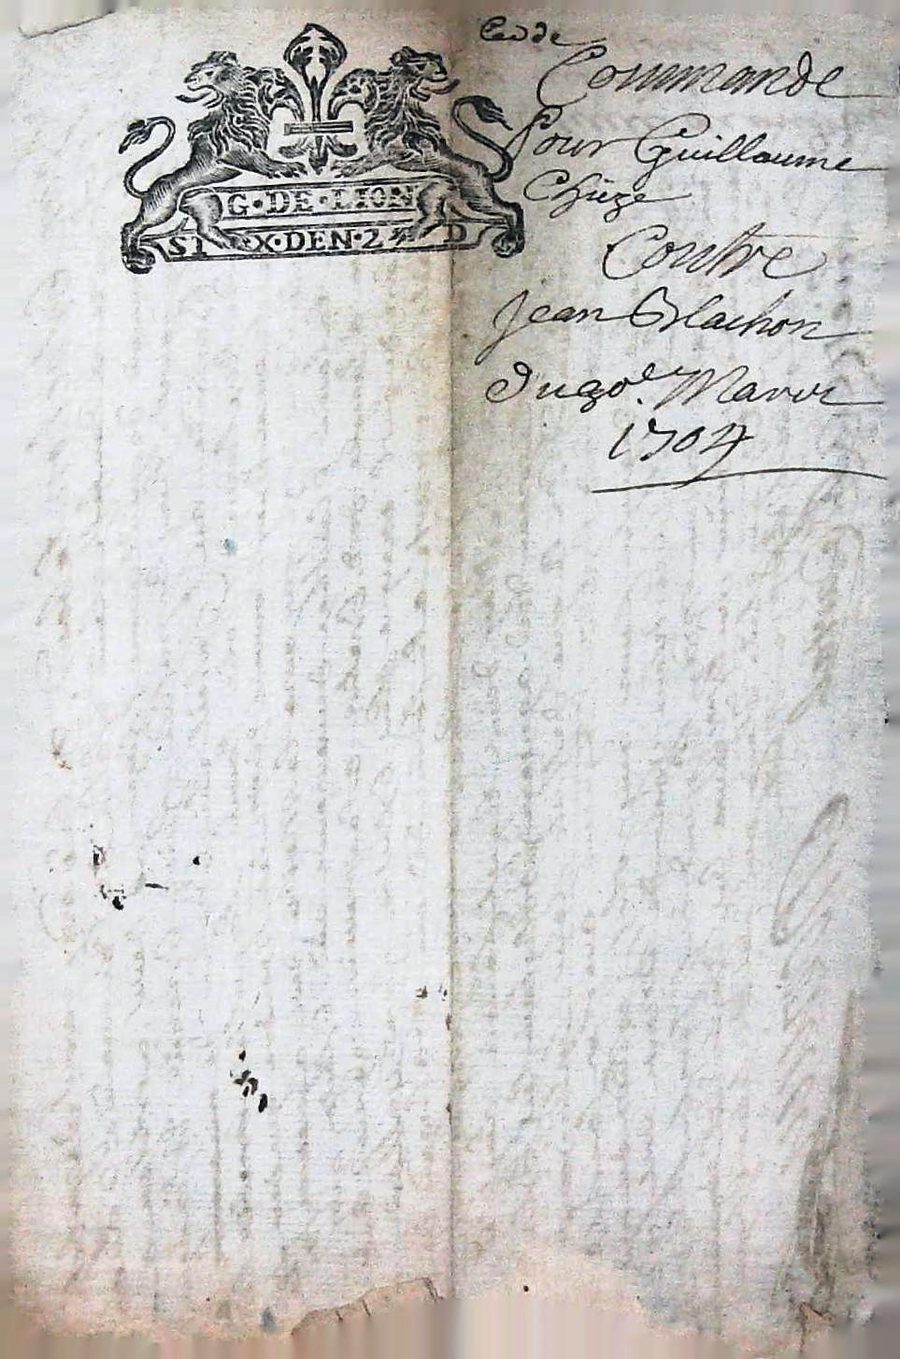 G·DE·LION
SIX·DEN·2 D
Commande
Pour Guillaume
Chieze
Contre
Jean Blachon
Du 20e. Mars
1704